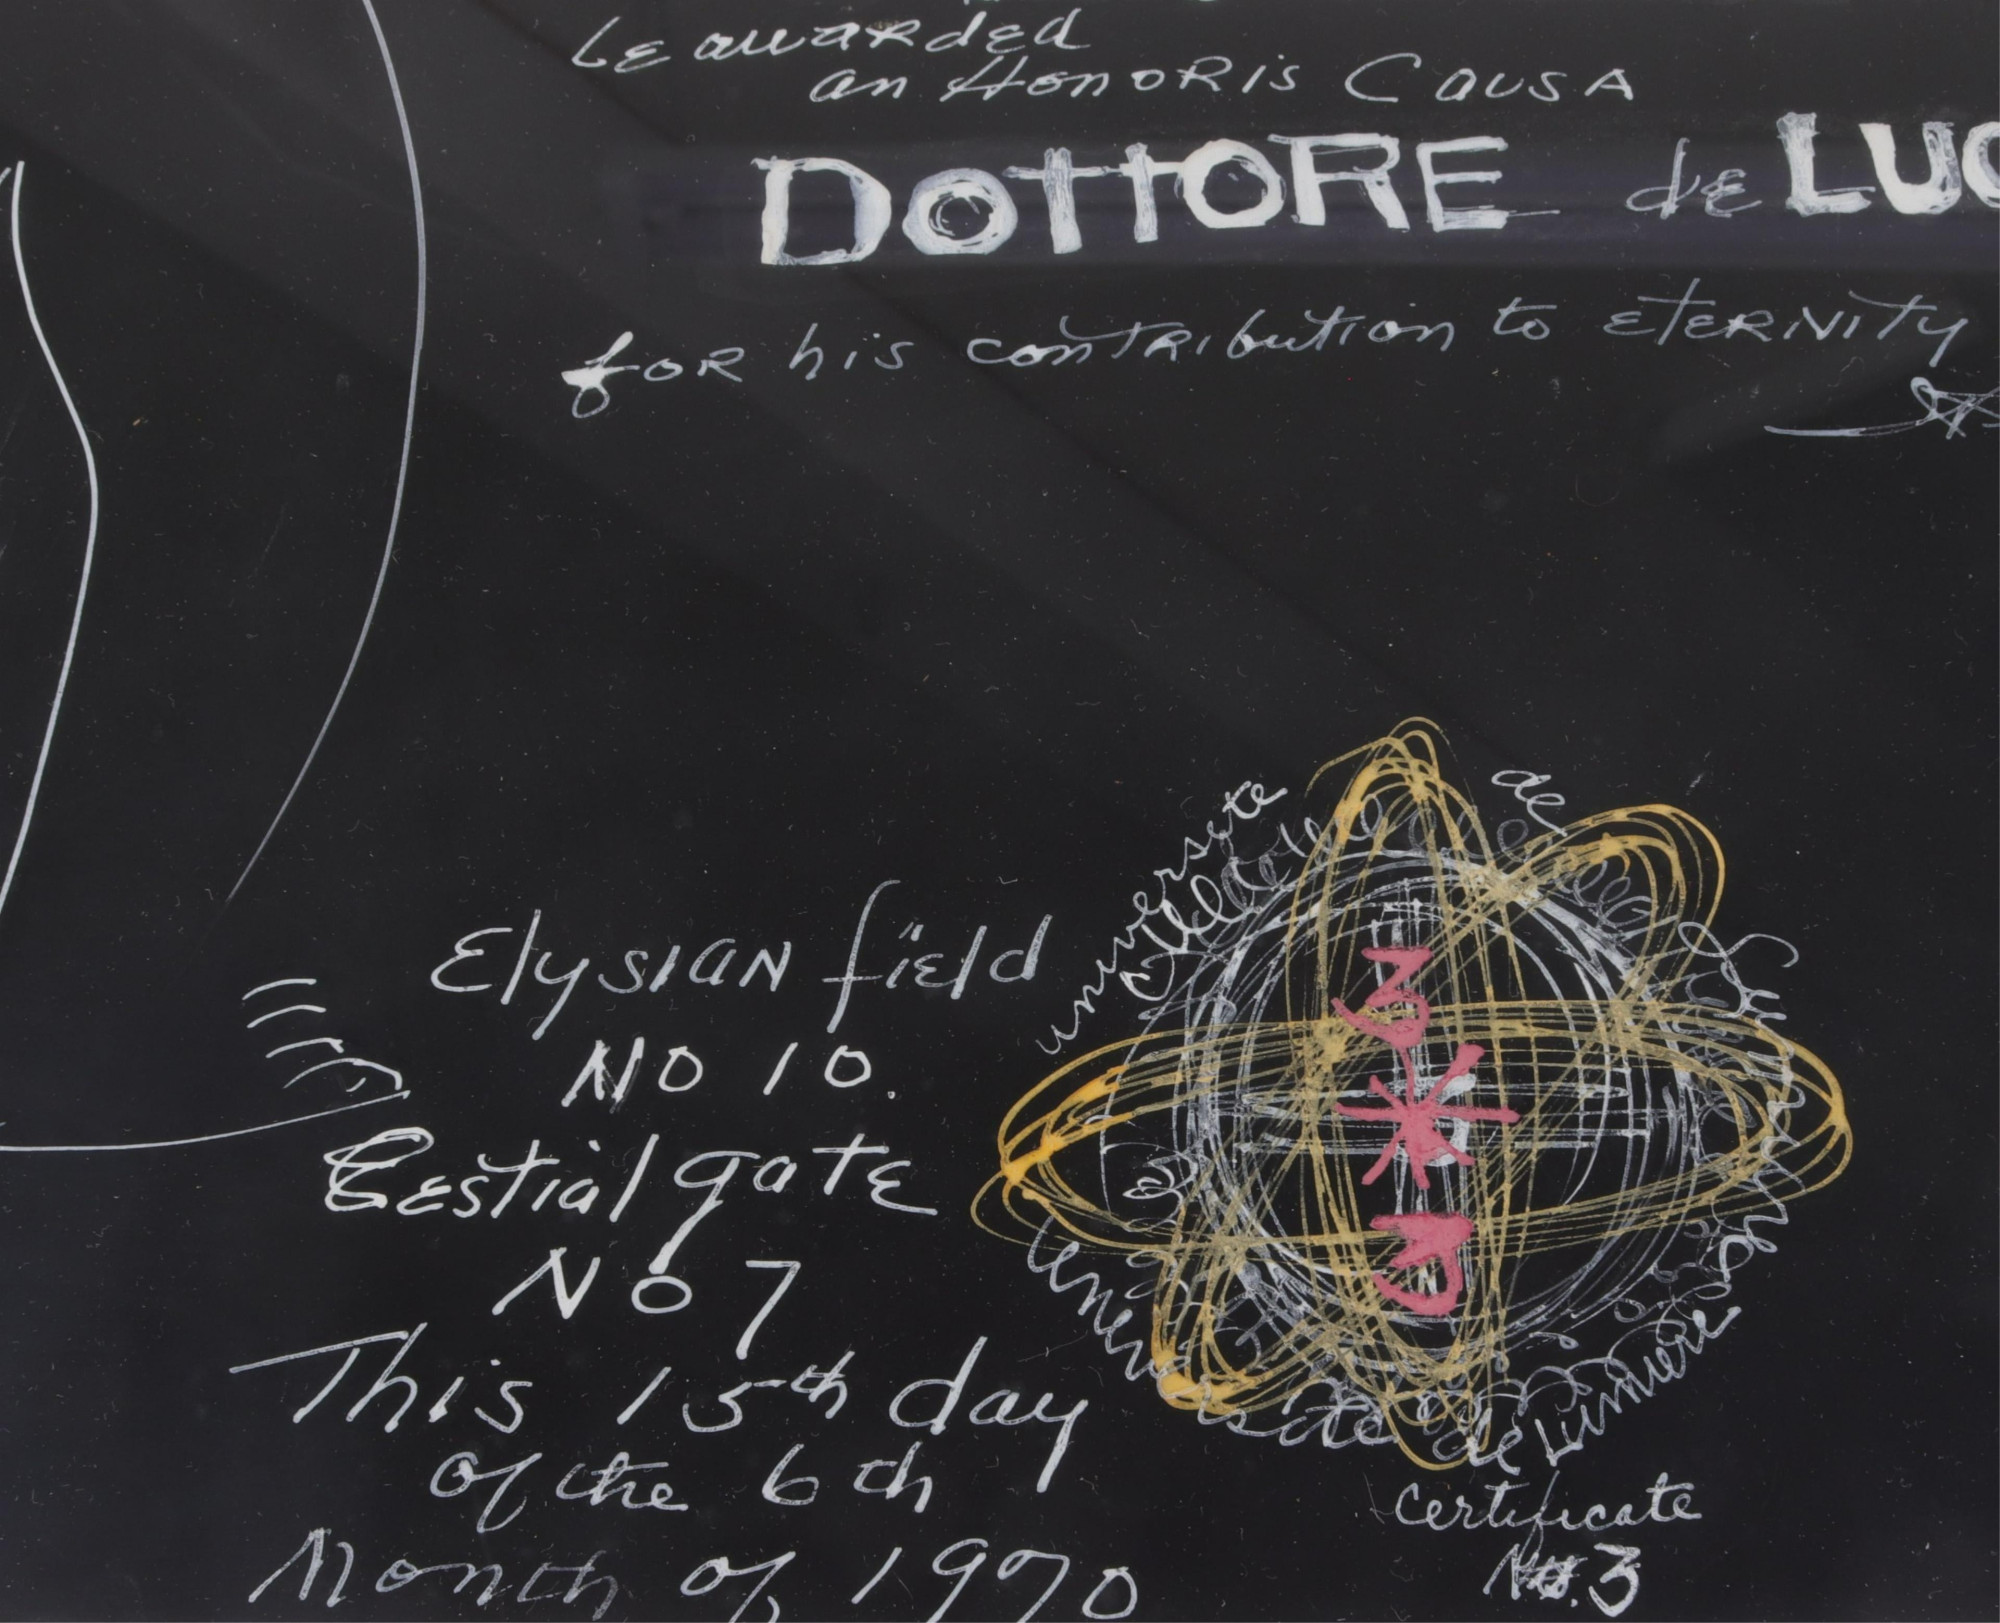 be awarded
an Honoris Causa
DOTTORE de LUC
for his contribution to eternity
Elysian field
No 10.
Cestial gate
No 7
This 15th day
of the 6th
Month of 1970
universite de
universite de Lumiere
3*3
certificate
No. 3